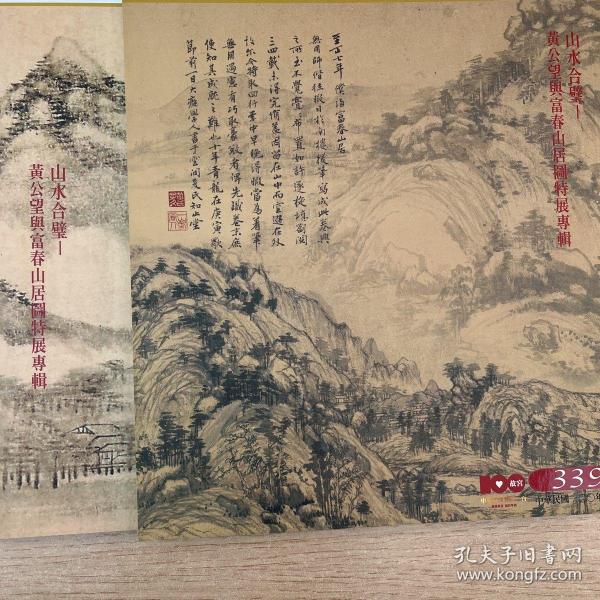 山水合璧—
黃公望與富春山居圖特展專輯
山水合璧—
黃公望與富春山居圖特展專輯
至正七年僕歸富春山居
無用師偕往暇日於南樓援筆寫成此卷興
之所至不覺亹亹布置如許逐旋填劄閱
三四載未得完備蓋因留在山中而雲遊在外
故爾今特取回行李中早晚得暇當為着筆
無用過慮有巧取豪敓者俾先識卷末庶
使知其成就之難也十年青龍在庚寅歜
節前一日大癡學人書于雲間夏氏知止堂
100
故宮
339
中華民國一〇〇年
孔夫子旧书网
www.kongfz.com